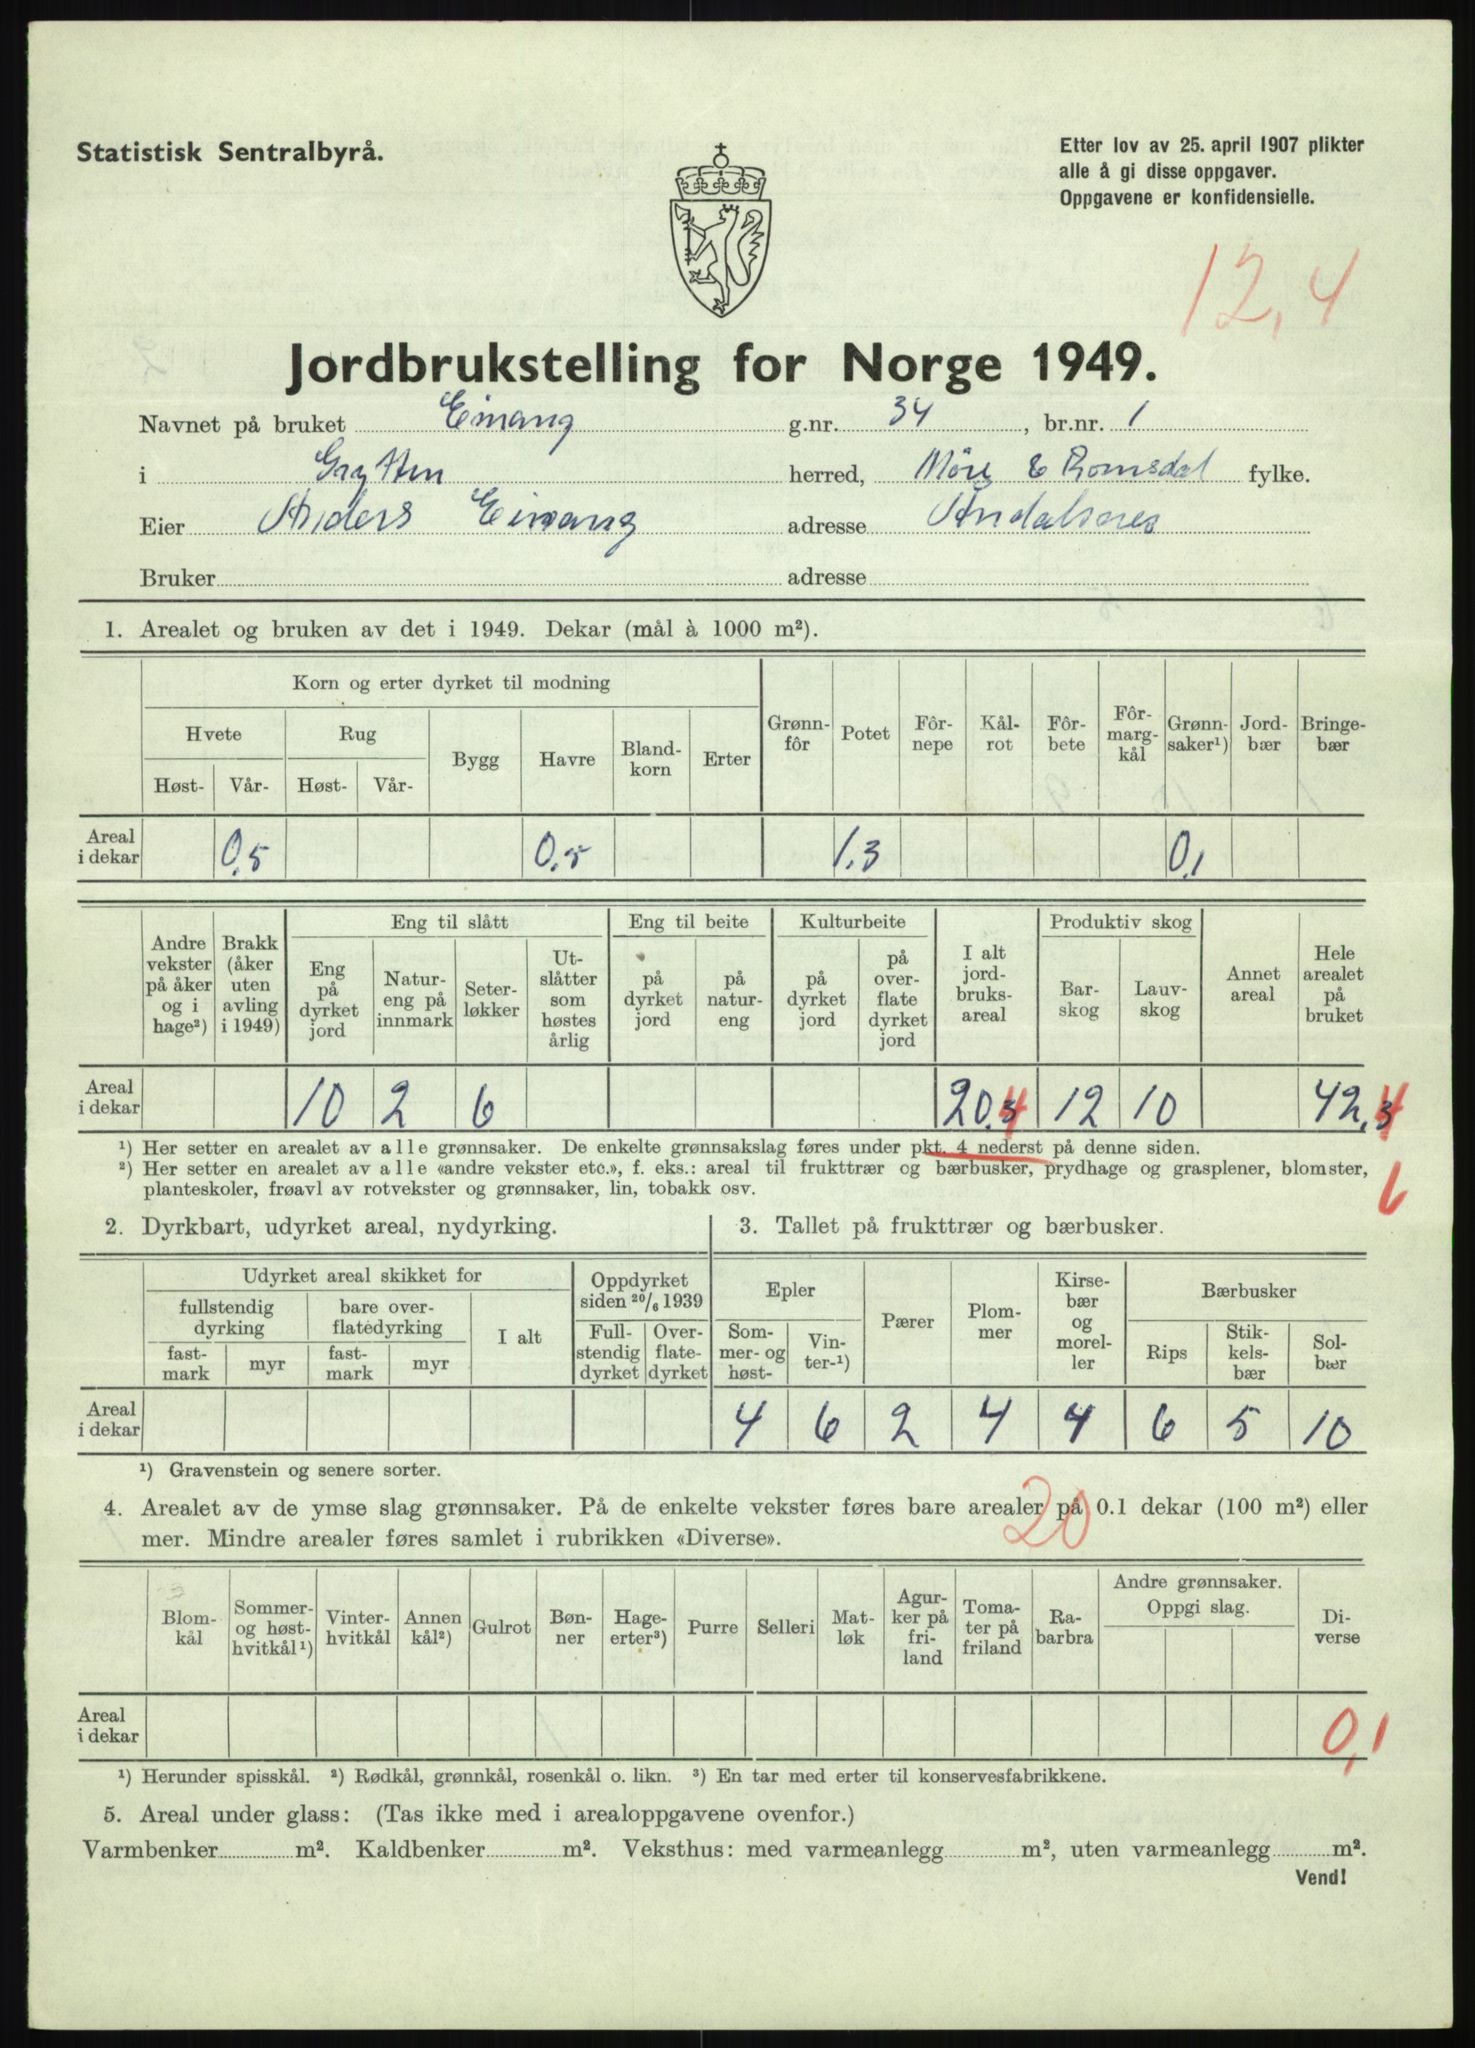 Statistisk Sentralbyrå.
Etter lov av 25. april 1907 plikter
alle å gi disse oppgaver.
Oppgavene er konfidensielle.
12,4
Jordbrukstelling for Norge 1949.
Navnet på bruket Einang g.nr. 34, br.nr. 1
i Grytten herred, Möre & Romsdal fylke.
Eier Anders Einang adresse Åndalsnes
Bruker adresse
1. Arealet og bruken av det i 1949. Dekar (mål à 1000 m²).
Korn og erter dyrket til modning
Hvete Rug Bygg Havre Bland-korn Erter Grønn-fôr Potet Fôr-nepe Kål-rot Fôr-bete Fôr-marg-kål Grønn-saker¹) Jord-bær Bringe-bær
Høst- Vår- Høst- Vår-
Areal i dekar 0,5 0,5 1,3 0,1
Andre vekster på åker og i hage²) Brakk (åker uten avling i 1949) Eng til slått Eng til beite Kulturbeite I alt jord-bruks-areal Produktiv skog Annet areal Hele arealet på bruket
Eng på dyrket jord Natur-eng på innmark Seter-løkker Ut-slåtter som høstes årlig på dyrket jord på natur-eng på dyrket jord på over-flate dyrket jord Bar-skog Lauv-skog
Areal i dekar 10 2 6 20.3 4 12 10 42,3 4
¹) Her setter en arealet av alle grønnsaker. De enkelte grønnsakslag føres under pkt. 4 nederst på denne siden.
²) Her setter en arealet av alle «andre vekster etc.», f. eks.: areal til frukttrær og bærbusker, prydhage og grasplener, blomster,
planteskoler, frøavl av rotvekster og grønnsaker, lin, tobakk osv.
6
2. Dyrkbart, udyrket areal, nydyrking.
3. Tallet på frukttrær og bærbusker.
Udyrket areal skikket for Oppdyrket siden 20/6 1939 Epler Pærer Plom-mer Kirse-bær og morel-ler Bærbusker
fullstendig dyrking bare over-flatedyrking I alt
fast-mark myr fast-mark myr Full-stendig dyrket Over-flate-dyrket Som-mer- og høst- Vin-ter-¹) Rips Stik-kels-bær Sol-bær
Areal i dekar 4 6 2 4 4 6 5 10
¹) Gravenstein og senere sorter.
20
4. Arealet av de ymse slag grønnsaker. På de enkelte vekster føres bare arealer på 0.1 dekar (100 m²) eller
mer. Mindre arealer føres samlet i rubrikken «Diverse».
Blom-kål Sommer- og høst-hvitkål¹) Vinter-hvitkål Annen kål²) Gulrot Bøn-ner Hage-erter³) Purre Selleri Mat-løk Agur-ker på fri-land Toma-ter på friland Ra-barbra Andre grønnsaker. Oppgi slag. Di-verse
Areal i dekar 0,1
¹) Herunder spisskål. ²) Rødkål, grønnkål, rosenkål o. likn. ³) En tar med erter til konservesfabrikkene.
5. Areal under glass: (Tas ikke med i arealoppgavene ovenfor.)
Varmbenker m². Kaldbenker m². Veksthus: med varmeanlegg m², uten varmeanlegg m².
Vend!